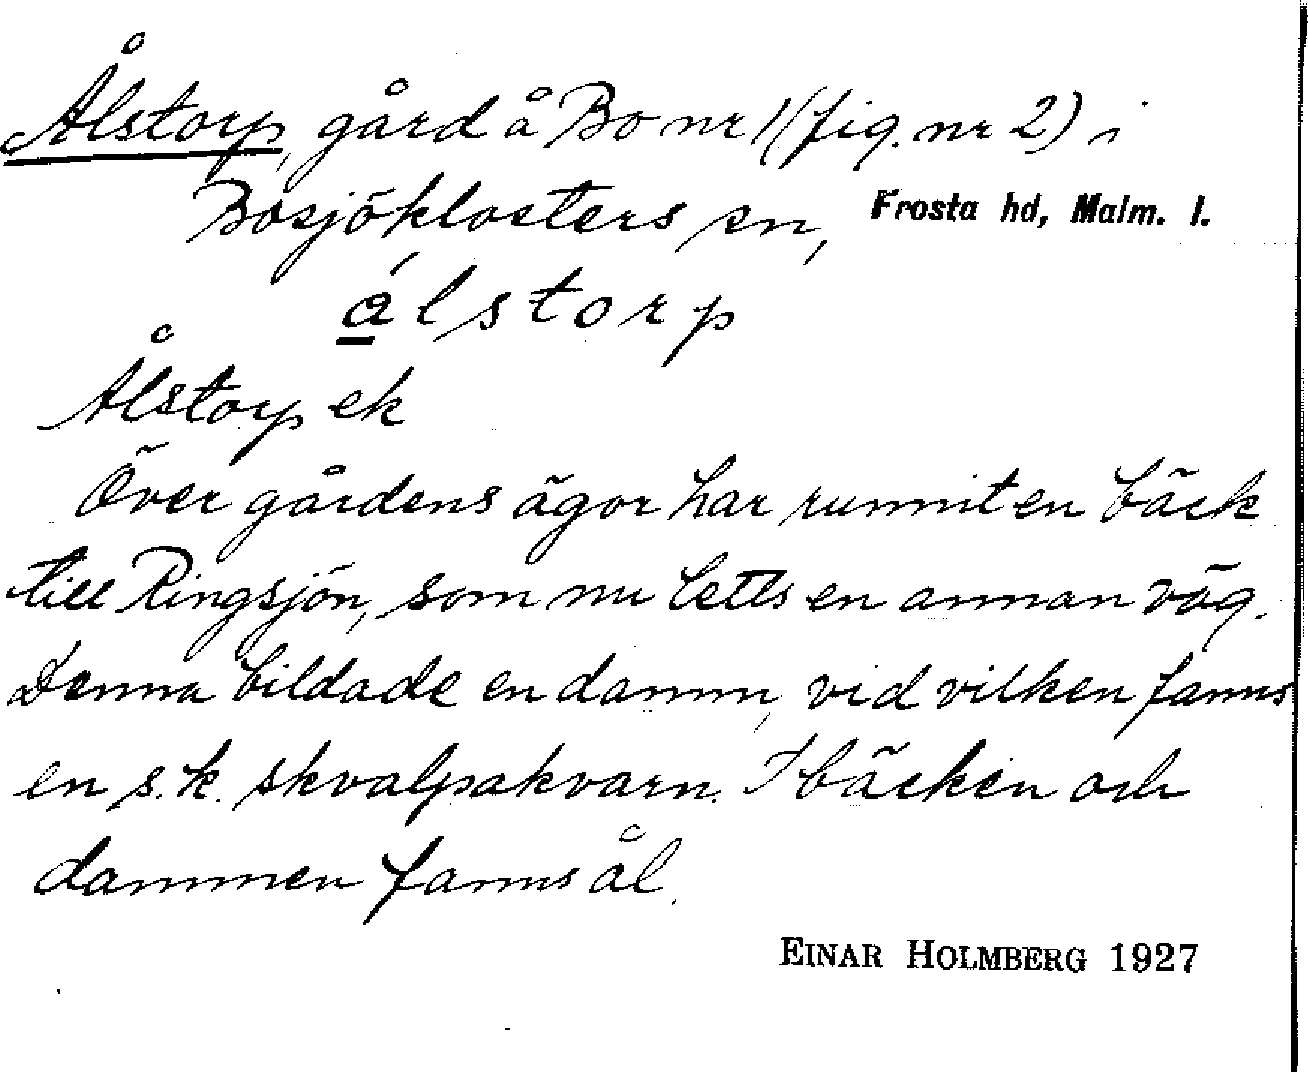 Ålstorp, gård å Bo nr 1 (fig. nr 2) i
Bosjöklosters sn, Frosta hd, Malm. l.
ålstorp
Ålstorp ek
Över gårdens ägor har runnit en bäck
till Ringsjön, som nu letts en annan väg.
Denna bildade en damm, vid vilken fanns
en s.k. skvalpakvarn. I bäcken och
dammen fanns ål.
EINAR HOLMBERG 1927